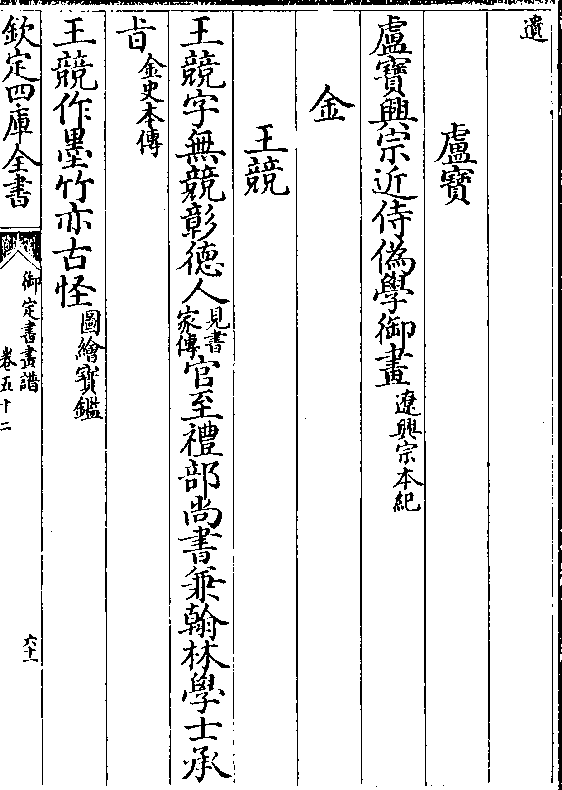 遺
盧寶
盧寶興宗近侍偽學御畫遼興宗本紀
金
王競
王競字無競彰德人見書家傳官至禮部尚書兼翰林學士承
㫖金史本傳
王競作墨竹亦古怪圖繪寶鑑
欽定四庫全書
御定書畫譜
卷五十二
六十一